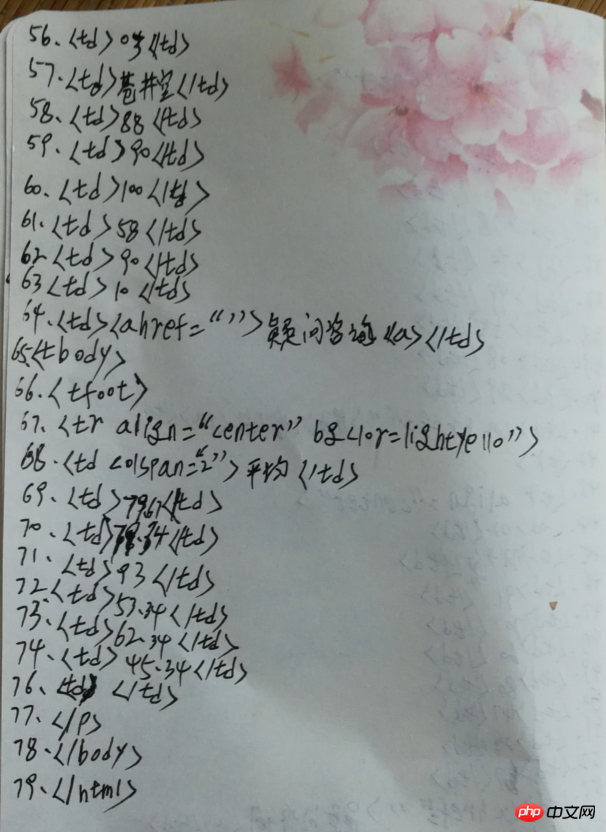 56、<td>03<td>
57、<td>苍井空</td>
58、<td>88<td>
59、<td>90<td>
60、<td>100</td>
61、<td>58</td>
62<td>90</td>
63<td>10</td>
64、<td><ahref=“”>疑问咨询<a></td>
65<tbody>
66、<tfoot>
67、<tr align=“center” bgclor=lightyello”>
68、<td colspan=“2”>平均</td>
69、<td>79.67<td>
70、<td>78.34<td>
71、<td>93</td>
72、<td>53.34</td>
73、<td>62.34</td>
74、<td>45.34</td>
76、<td></td>
77、</p>
78、</body>
79、</html>
php 中文网